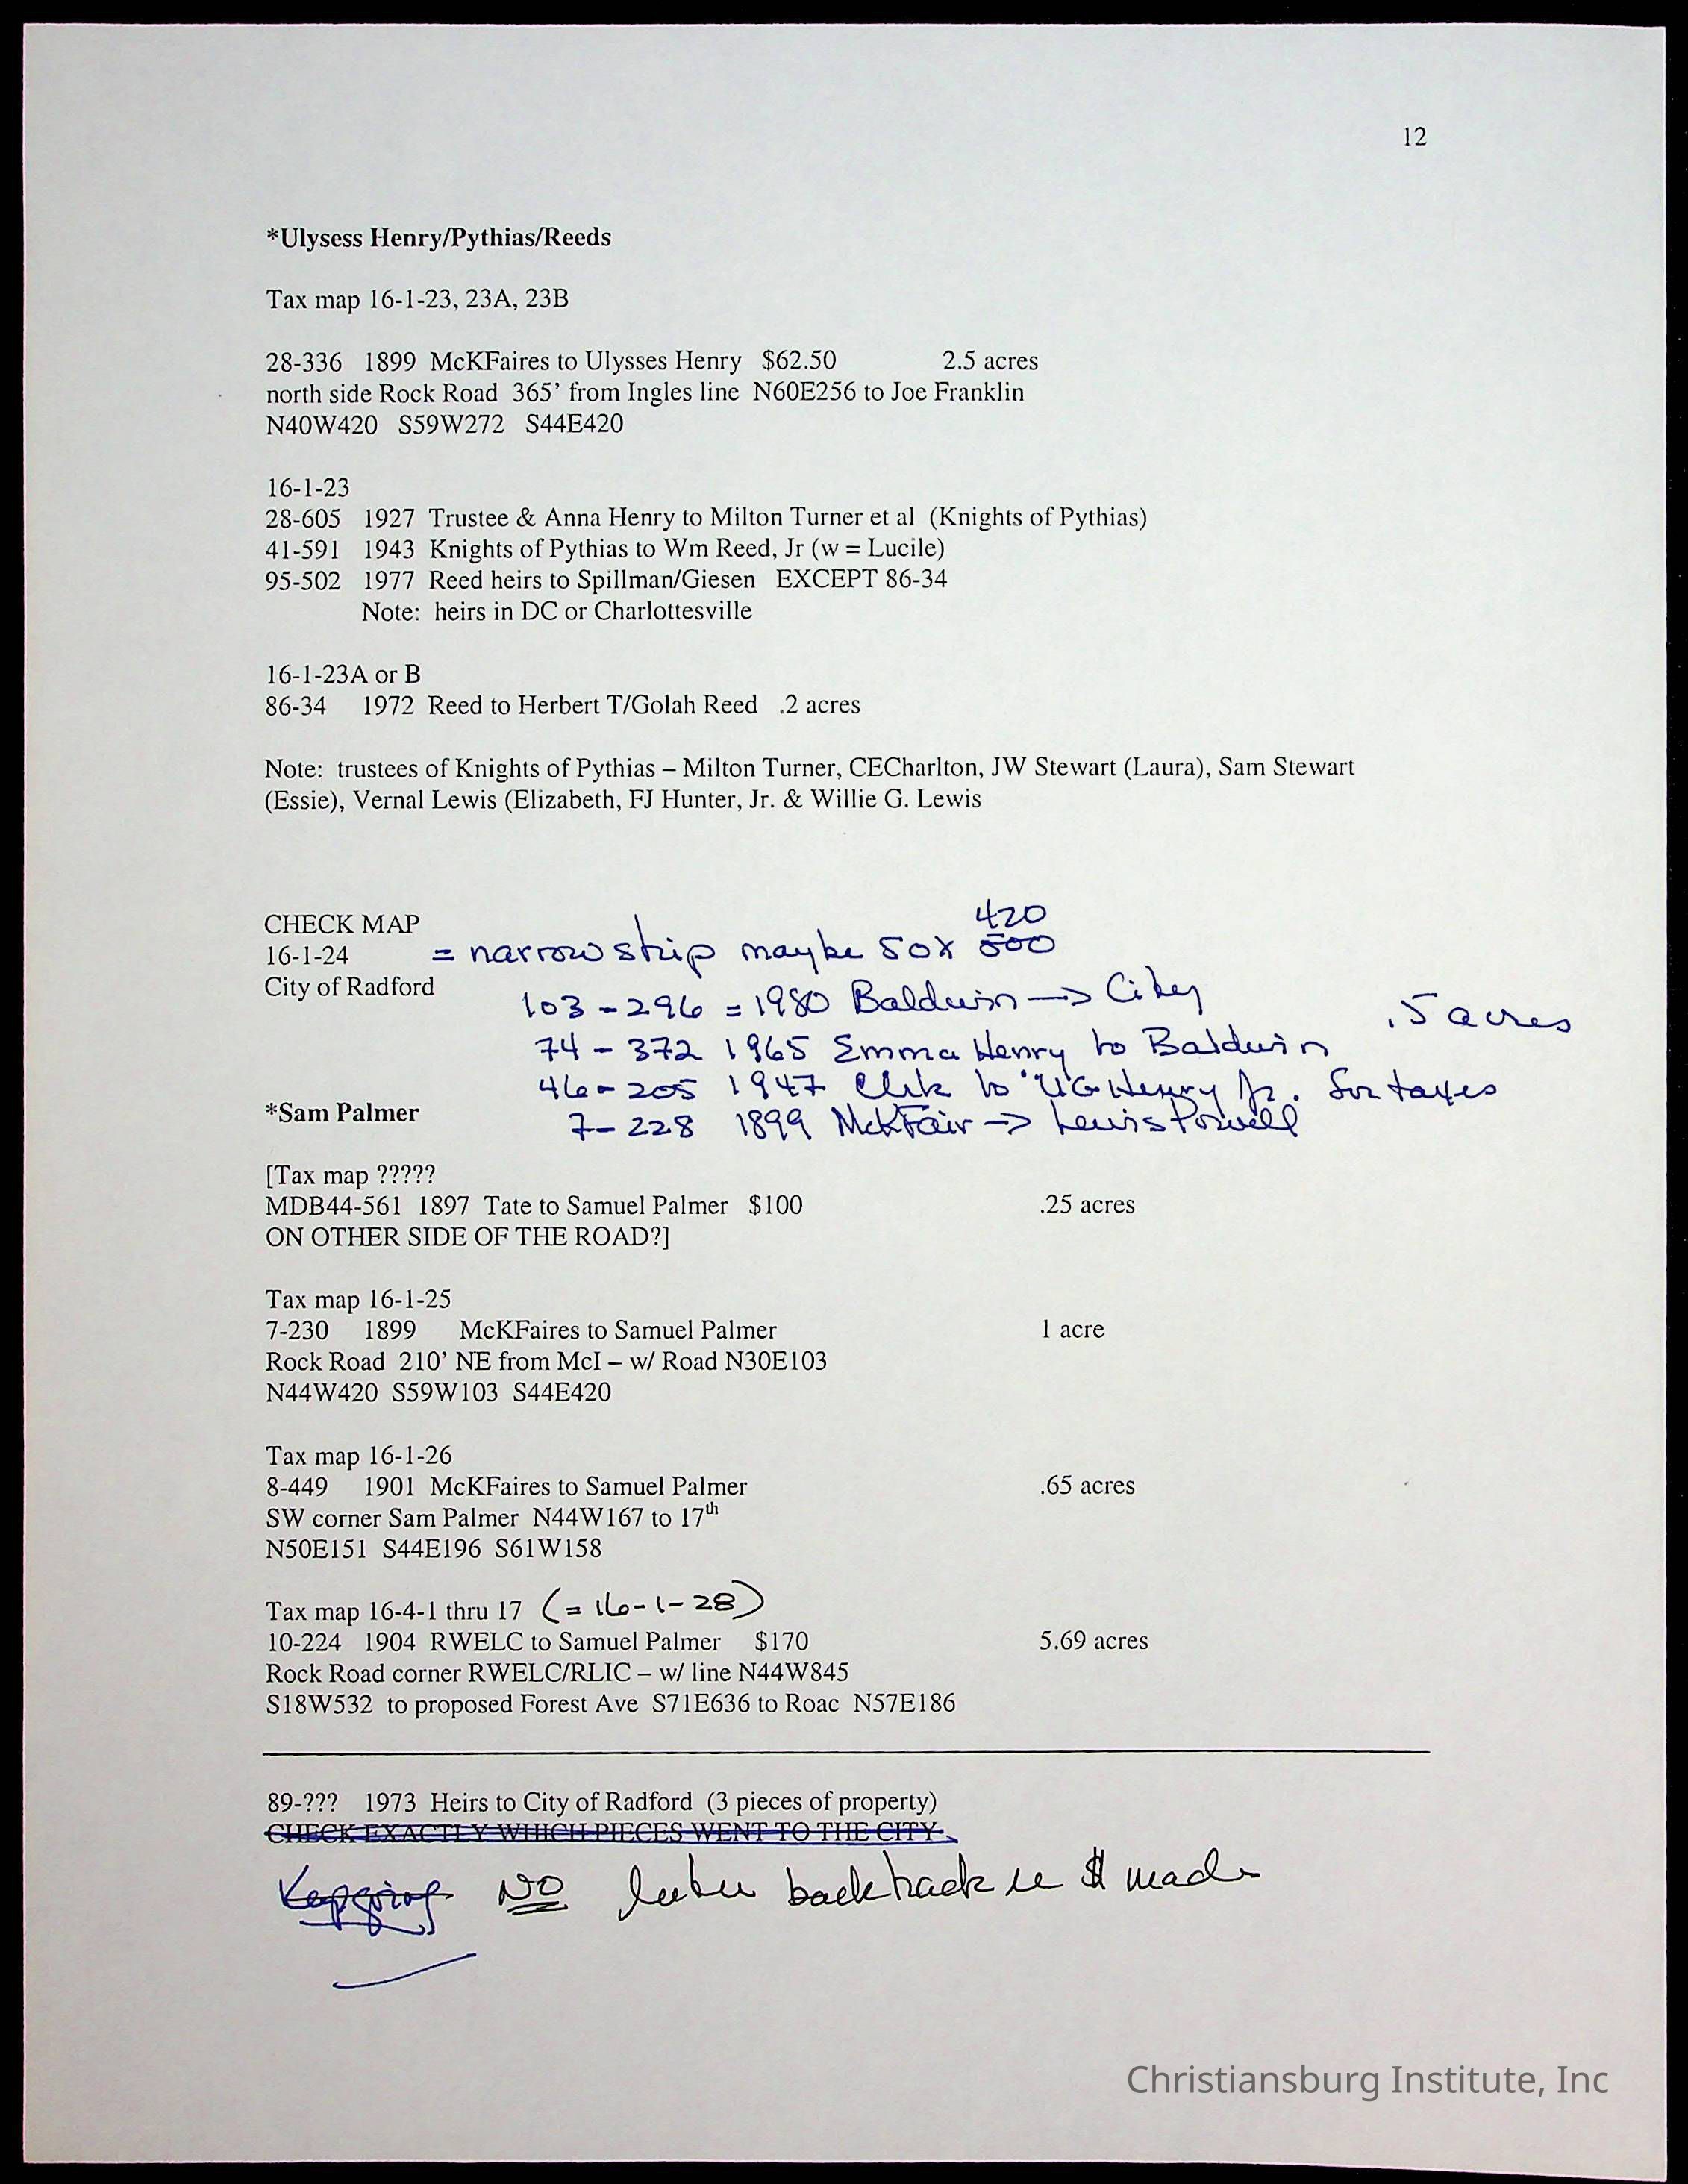 12
*Ulysess Henry/Pythias/Reeds
Tax map 16-1-23, 23A, 23B
28-336 1899 McKFaires to Ulysses Henry $62.50 2.5 acres
north side Rock Road 365’ from Ingles line N60E256 to Joe Franklin
N40W420 S59W272 S44E420
16-1-23
28-605 1927 Trustee & Anna Henry to Milton Turner et al (Knights of Pythias)
41-591 1943 Knights of Pythias to Wm Reed, Jr (w = Lucile)
95-502 1977 Reed heirs to Spillman/Giesen EXCEPT 86-34
Note: heirs in DC or Charlottesville
16-1-23A or B
86-34 1972 Reed to Herbert T/Golah Reed .2 acres
Note: trustees of Knights of Pythias – Milton Turner, CECharlton, JW Stewart (Laura), Sam Stewart
(Essie), Vernal Lewis (Elizabeth, FJ Hunter, Jr. & Willie G. Lewis
CHECK MAP
420
16-1-24 = narrow strip maybe 50x 500
City of Radford
103-296 = 1980 Baldwin -> City .5 acres
74-372 1965 Emma Henry to Baldwin
46-205 1947 Clrk to UG Henry Jr. for taxes
*Sam Palmer 7-228 1899 McKFair -> Lewis Powell
[Tax map ?????
MDB44-561 1897 Tate to Samuel Palmer $100 .25 acres
ON OTHER SIDE OF THE ROAD?]
Tax map 16-1-25
7-230 1899 McKFaires to Samuel Palmer 1 acre
Rock Road 210’ NE from McI – w/ Road N30E103
N44W420 S59W103 S44E420
Tax map 16-1-26
8-449 1901 McKFaires to Samuel Palmer .65 acres
SW corner Sam Palmer N44W167 to 17th
N50E151 S44E196 S61W158
Tax map 16-4-1 thru 17 (= 16-1-28)
10-224 1904 RWELC to Samuel Palmer $170 5.69 acres
Rock Road corner RWELC/RLIC – w/ line N44W845
S18W532 to proposed Forest Ave S71E636 to Roac N57E186
89-??? 1973 Heirs to City of Radford (3 pieces of property)
CHECK EXACTLY WHICH PIECES WENT TO THE CITY.
NO backtrack re $ made
Christiansburg Institute, Inc